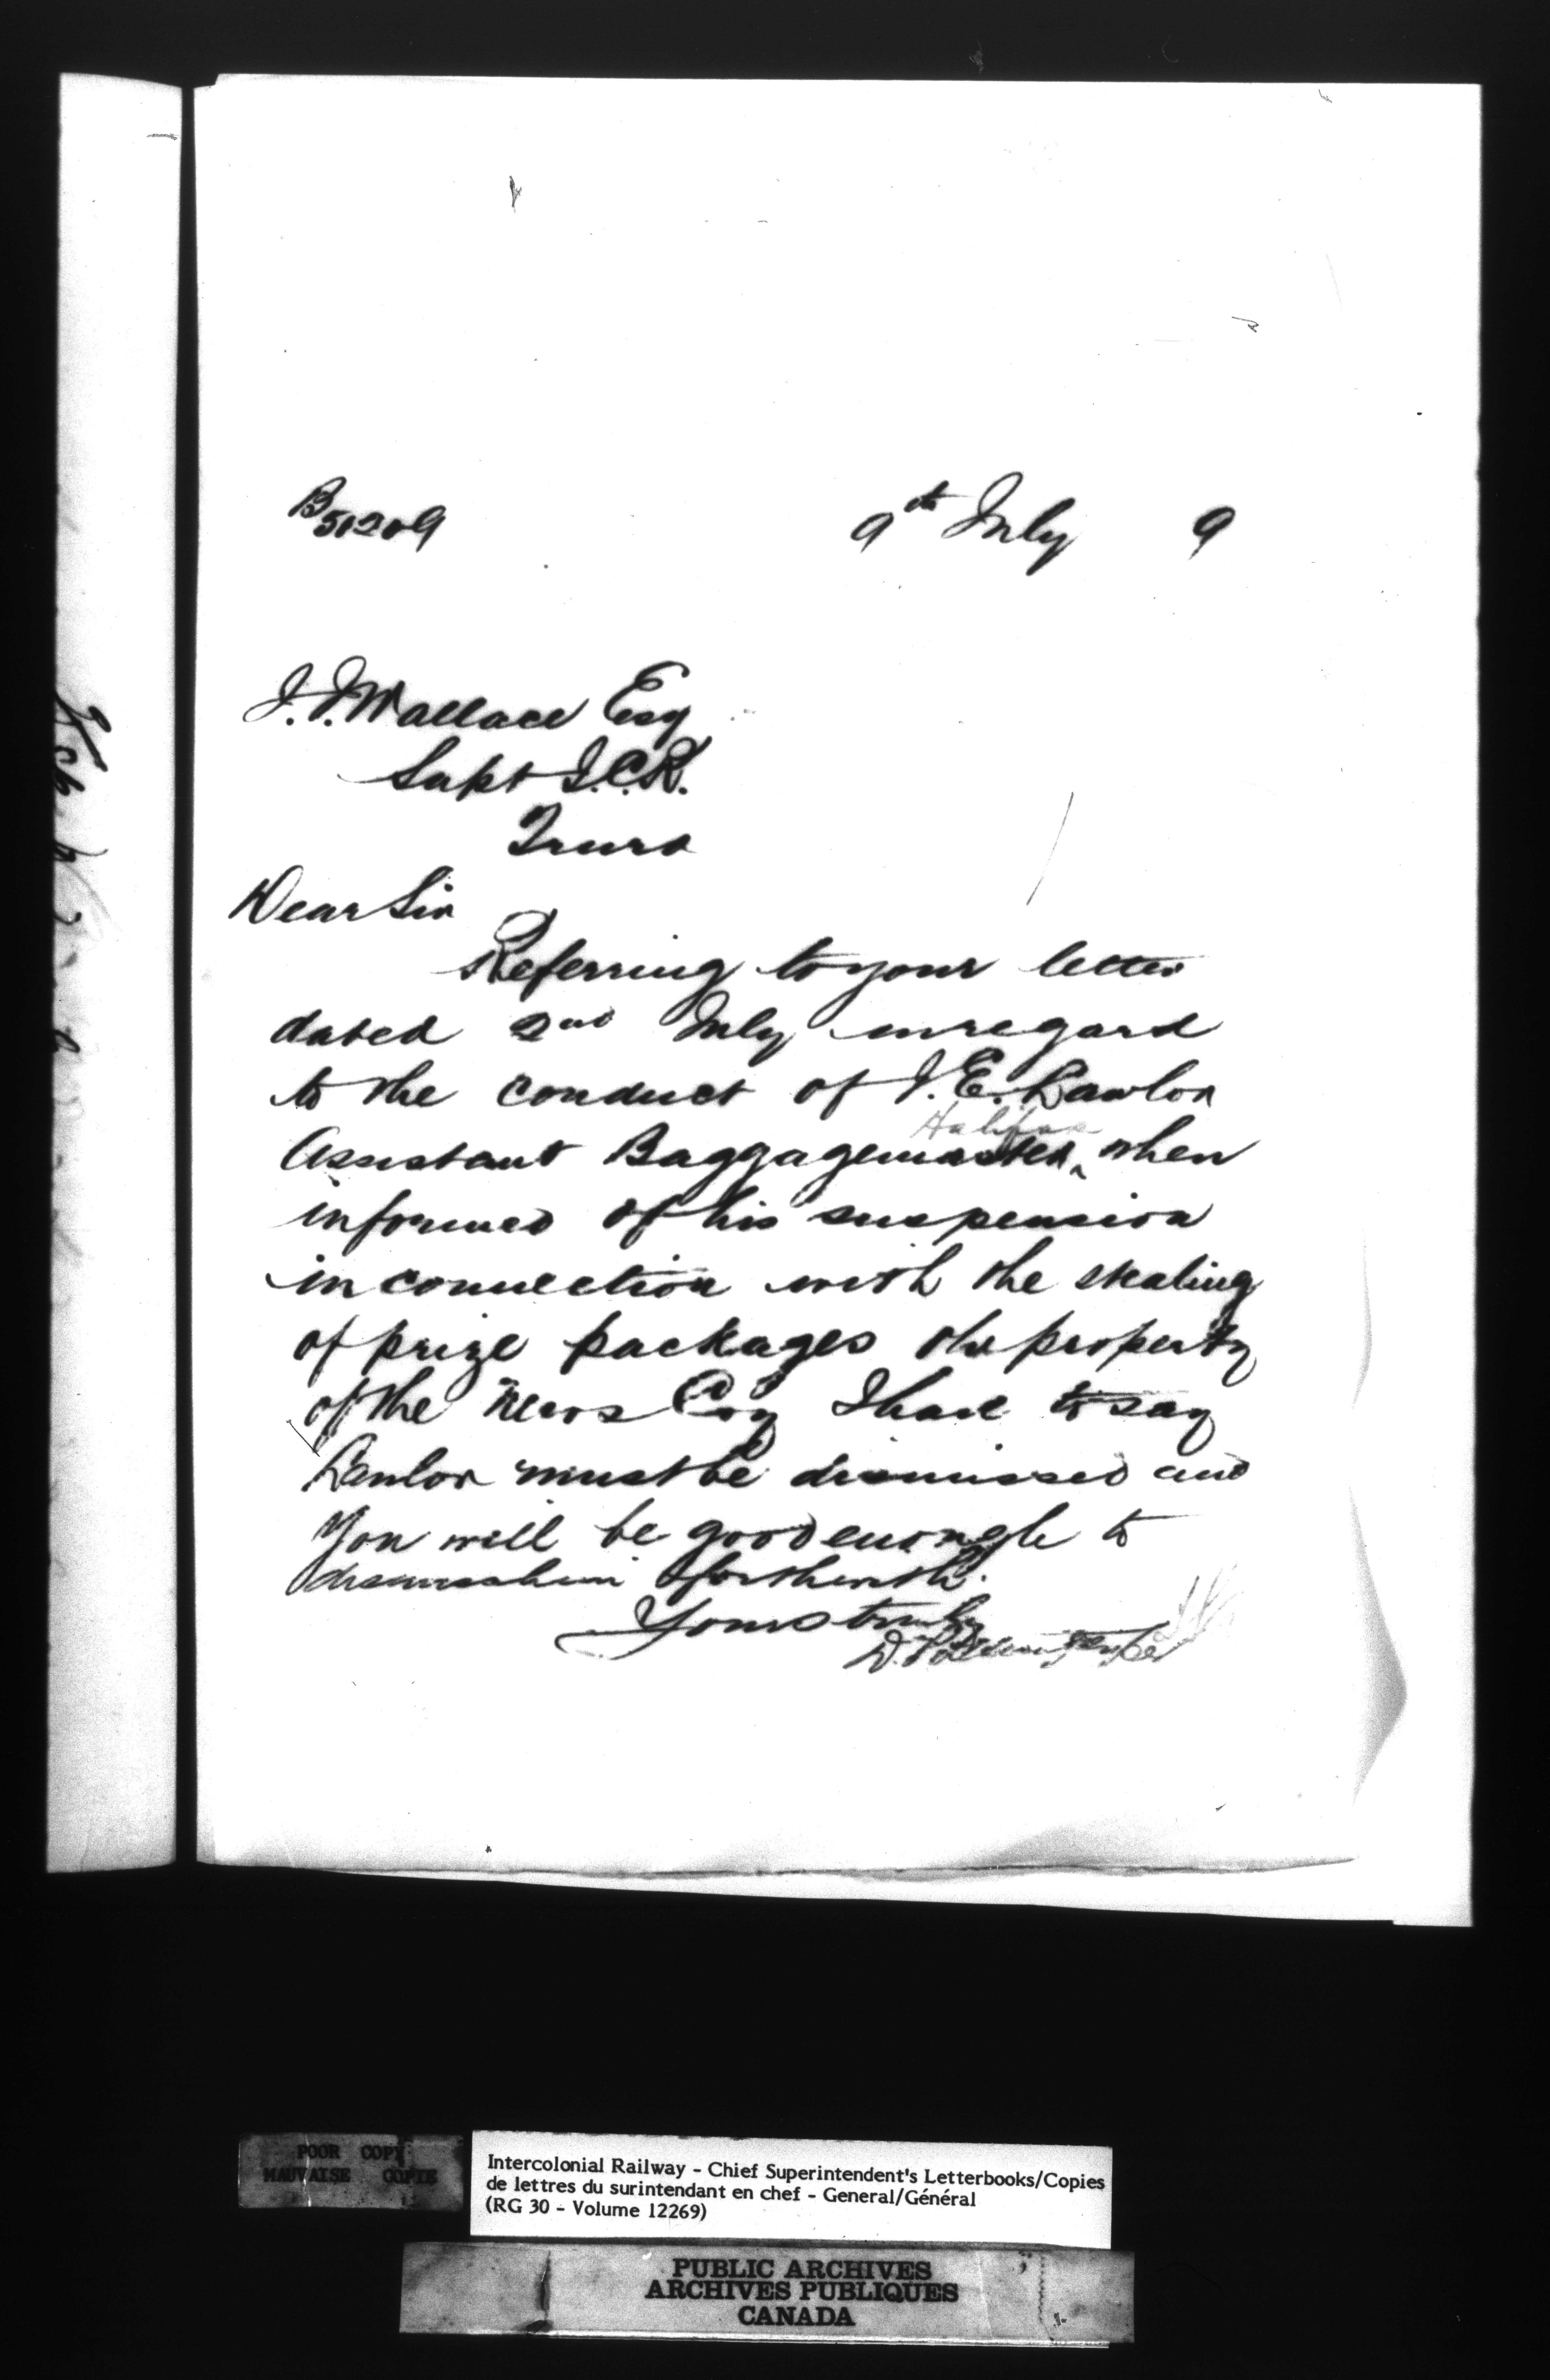 B 51209
9th July 9
J. J. Wallace Esq
Supt I.C.R.
Truro
Dear Sir
Referring to your letter
dated 2nd July in regard
to the conduct of J. E. Lawlor
Halifax
Assistant Baggagemaster ‸ when
informed of his suspension
in connection with the stealing
of prize packages the property
of the News Coy I have to say
Lawlor must be dismissed and
you will be good enough to
dismiss him forthwith.
Yours truly
D. Pottinger
POOR COPY
MAUVAISE COPIE
Intercolonial Railway - Chief Superintendent's Letterbooks/Copies
de lettres du surintendant en chef - General/Général
(RG 30 - Volume 12269)
PUBLIC ARCHIVES
ARCHIVES PUBLIQUES
CANADA